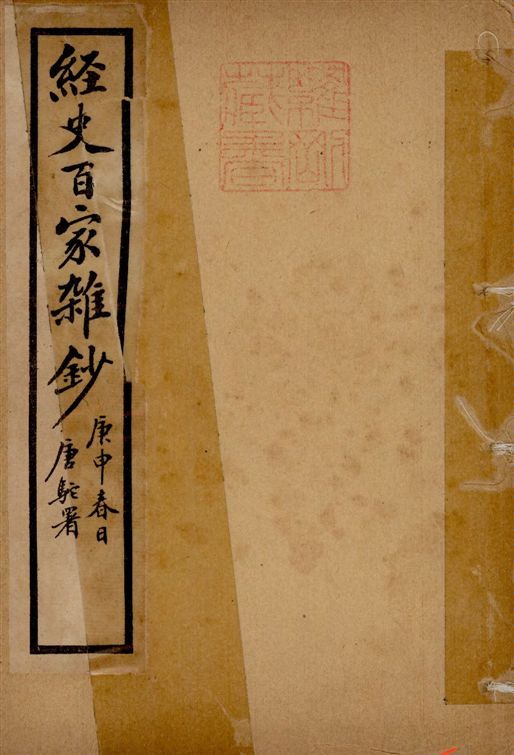 経史百家雑鈔
庚申春日
唐駝署